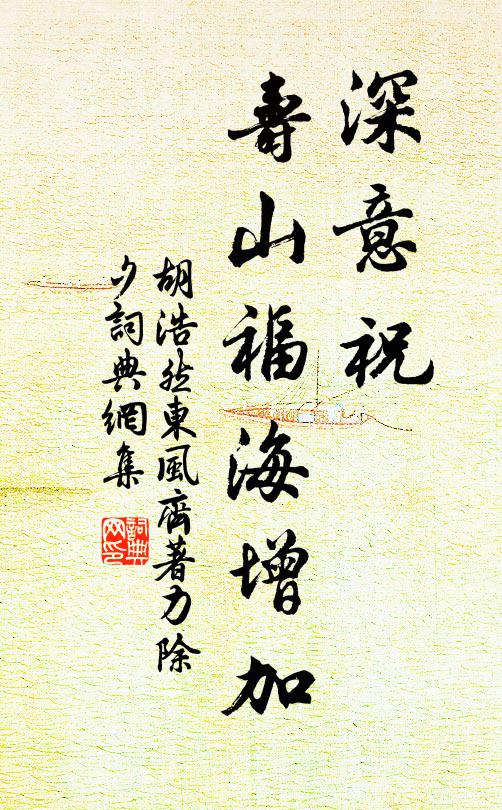 深意祝
壽山福海增加
胡浩然東風齊著力除
夕詞典網集
詞典
网印